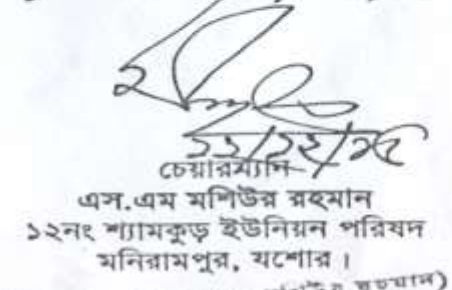 চেয়ারম্যান
এস.এম মশিউর রহমান
১২নং শ্যামকুড় ইউনিয়ন পরিষদ
মনিরামপুর, যশোর ।
রহমান)